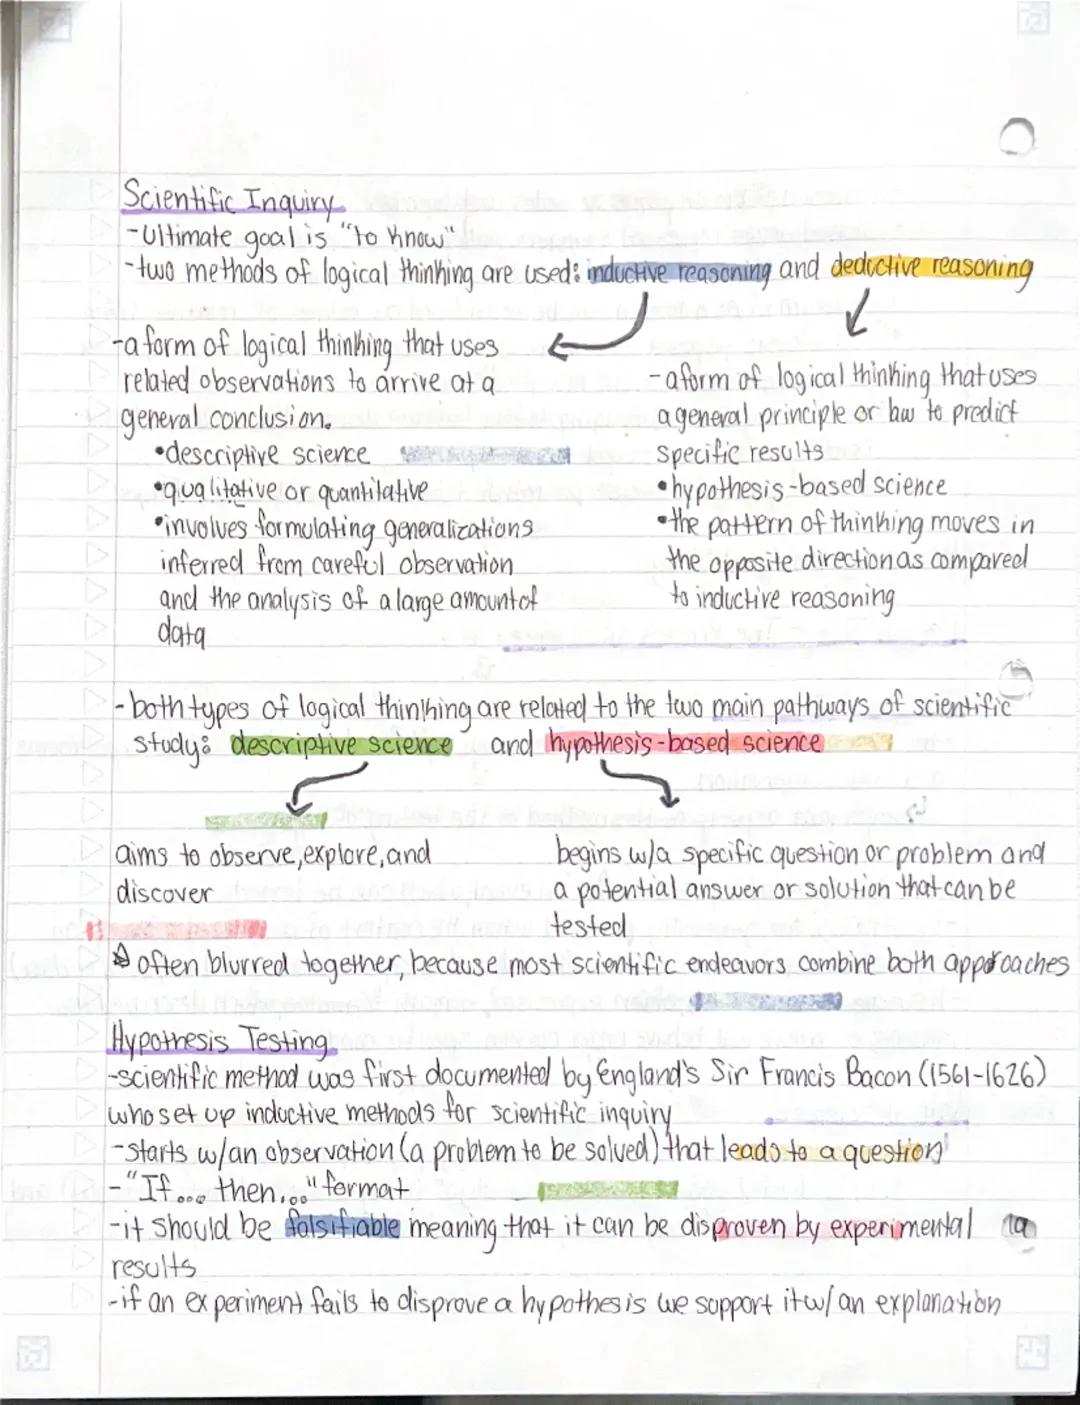 Scientific Inquiry
-Ultimate goal is "to know"
-two methods of logical thinking are used: inductive reasoning and deductive reasoning
-a form of logical thinking that uses
related observations to arrive at a
general conclusion.
•descriptive science
•qualitative or quantitative
•involves formulating generalizations
inferred from careful observation
and the analysis of a large amount of
data
-a form of logical thinking that uses
a general principle or law to predict
specific results
•hypothesis-based science
•the pattern of thinking moves in
the opposite direction as compared
to inductive reasoning
-both types of logical thinking are related to the two main pathways of scientific
study: descriptive science and hypothesis-based science
aims to observe, explore, and
discover
begins w/a specific question or problem and
a potential answer or solution that can be
tested
often blurred together, because most scientific endeavors combine both approaches
Hypothesis Testing
-scientific method was first documented by England's Sir Francis Bacon (1561-1626)
who set up inductive methods for scientific inquiry
-starts w/an observation (a problem to be solved) that leads to a question
-"If... then..." format
-it should be falsifiable meaning that it can be disproven by experimental
results
-if an experiment fails to disprove a hypothesis we support it w/ an explanation